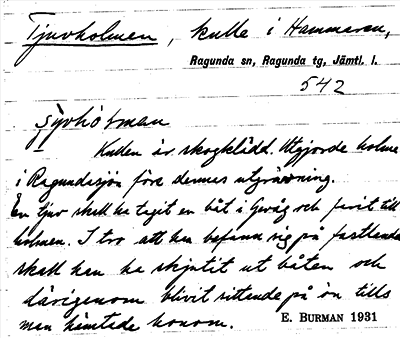 Tjuvholmen, kulle i Hammaren,
Ragunda sn, Ragunda tg, Jämtl. l.
542
Kullen är skogklädd. Utgjorde holme
i Ragundasjön före dennas utgrävning.
En tjuv skall ha tagit en båt i Gevåg och farit till
holmen. I tro att han befann sig på fastlandet
skall han ha skjutit ut båten och
därigenom blivit sittande på ön tills
man hämtade honom.
E. BURMAN 1931